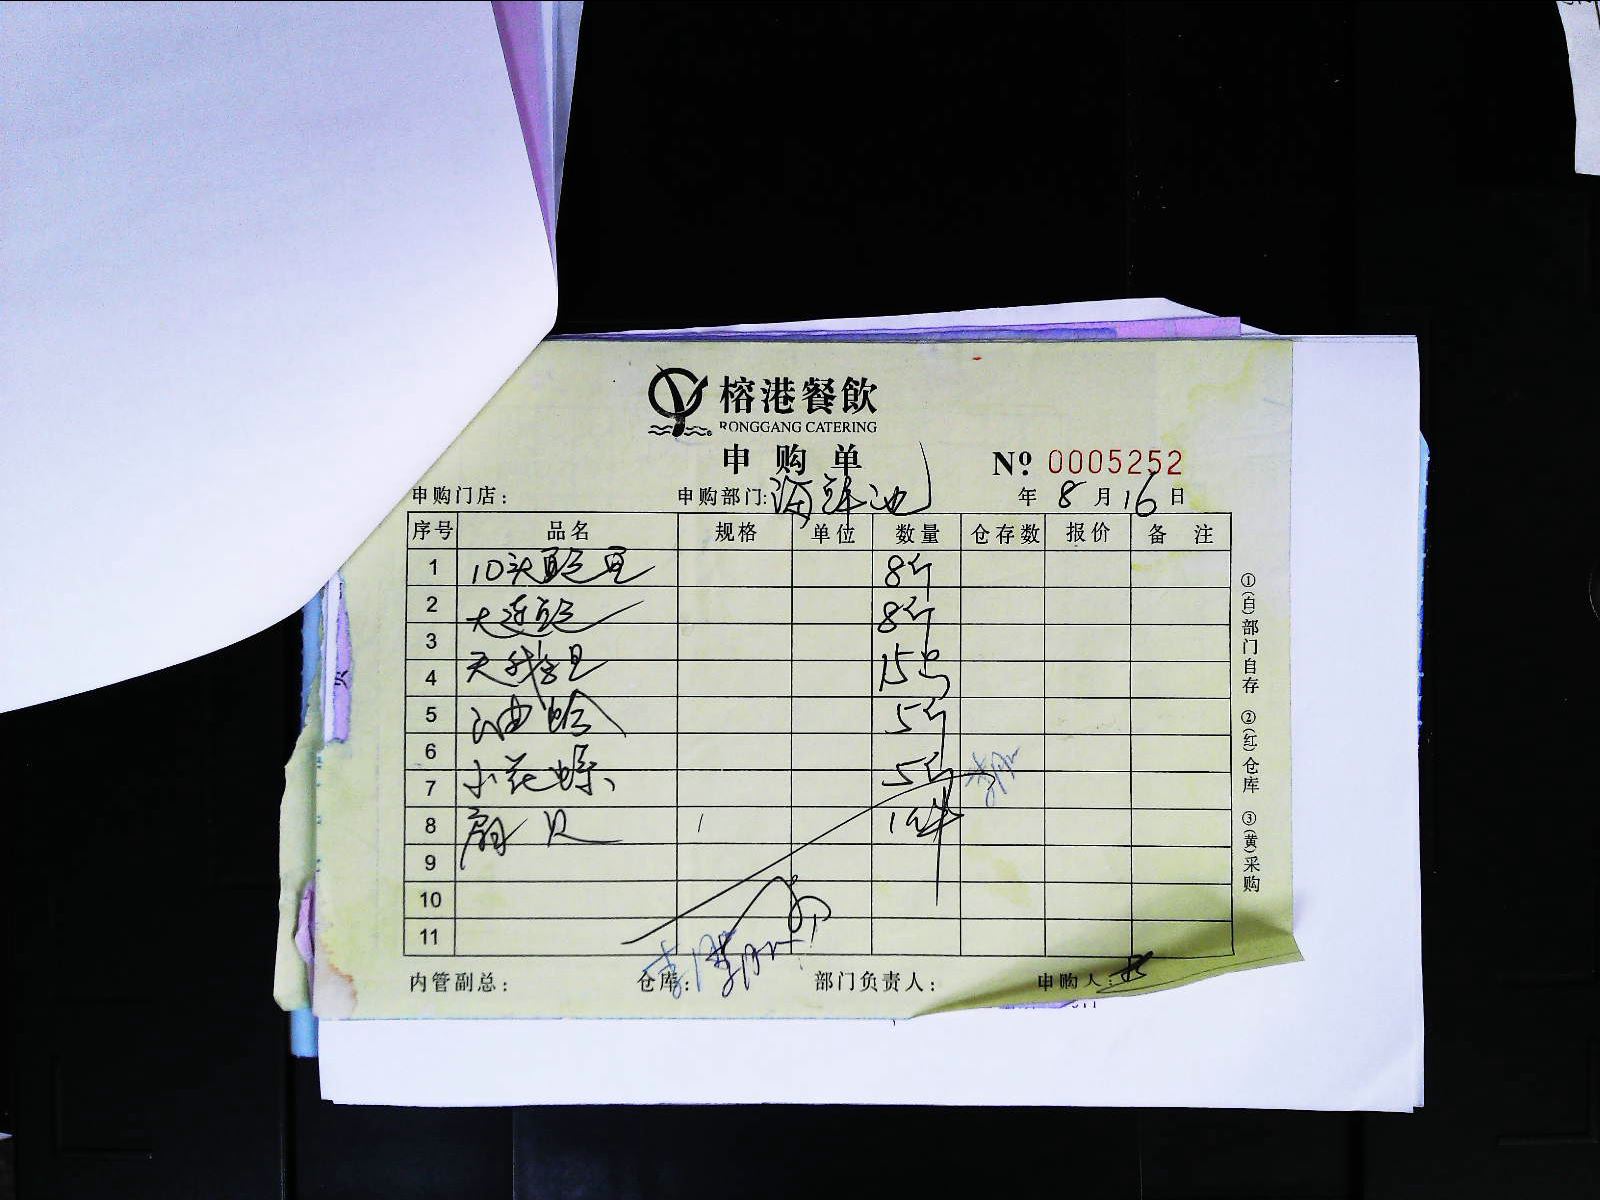 榕港餐飲
RONGGANG CATERING
申购单
Nº 0005252
申购门店: 申购部门: 海鲜池 年 8 月 16 日
序号 品名 规格 单位 数量 仓存数 报价 备注
1 10头鲍 8斤
2 大连鲍 8斤
3
4 15
5 油蛤 5斤
6
7 小花螺 5斤
8 扇贝 1件
9
10
11
内管副总: 仓库: 部门负责人: 申购人:
①(白)部门自存 ②(红)仓库 ③(黄)采购